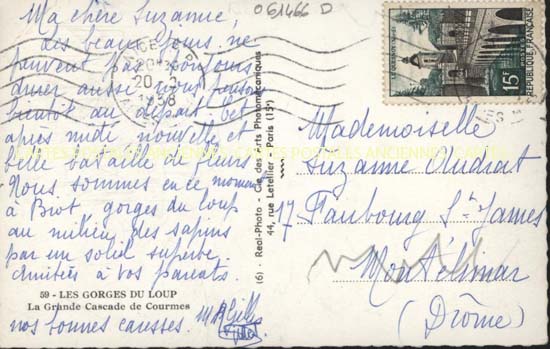 061466 D
Ma chère Suzanne,
des beaux jours ne
peuvent pas toujours
durer aussi nous pensons
bientôt au départ. Cet
après midi nouvelle et
belle bataille de fleurs
Nous sommes en ce moment
à Biot gorges du loup
au milieu des sapins
par un soleil superbe.
Amitiés à vos parents.
59 - LES GORGES DU LOUP
La Grande Cascade de Courmes
nos bonnes causses.
(6) - Real-Photo - Cie des Arts Photomécaniques
44, rue Letellier - Paris (15e)
20 - 2
1958
LE QUESNOY
15F
REPUBLIQUE FRANÇAISE
Mademoiselle
Suzanne Audrat
17 Faubourg St James
Montélimar
(Drôme)
CARTES POSTALES ANCIENNES